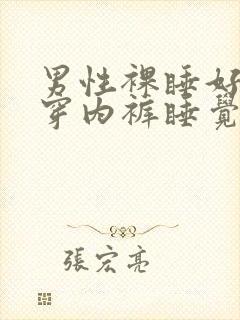 男性裸睡好
穿内裤睡覺
張宏亮